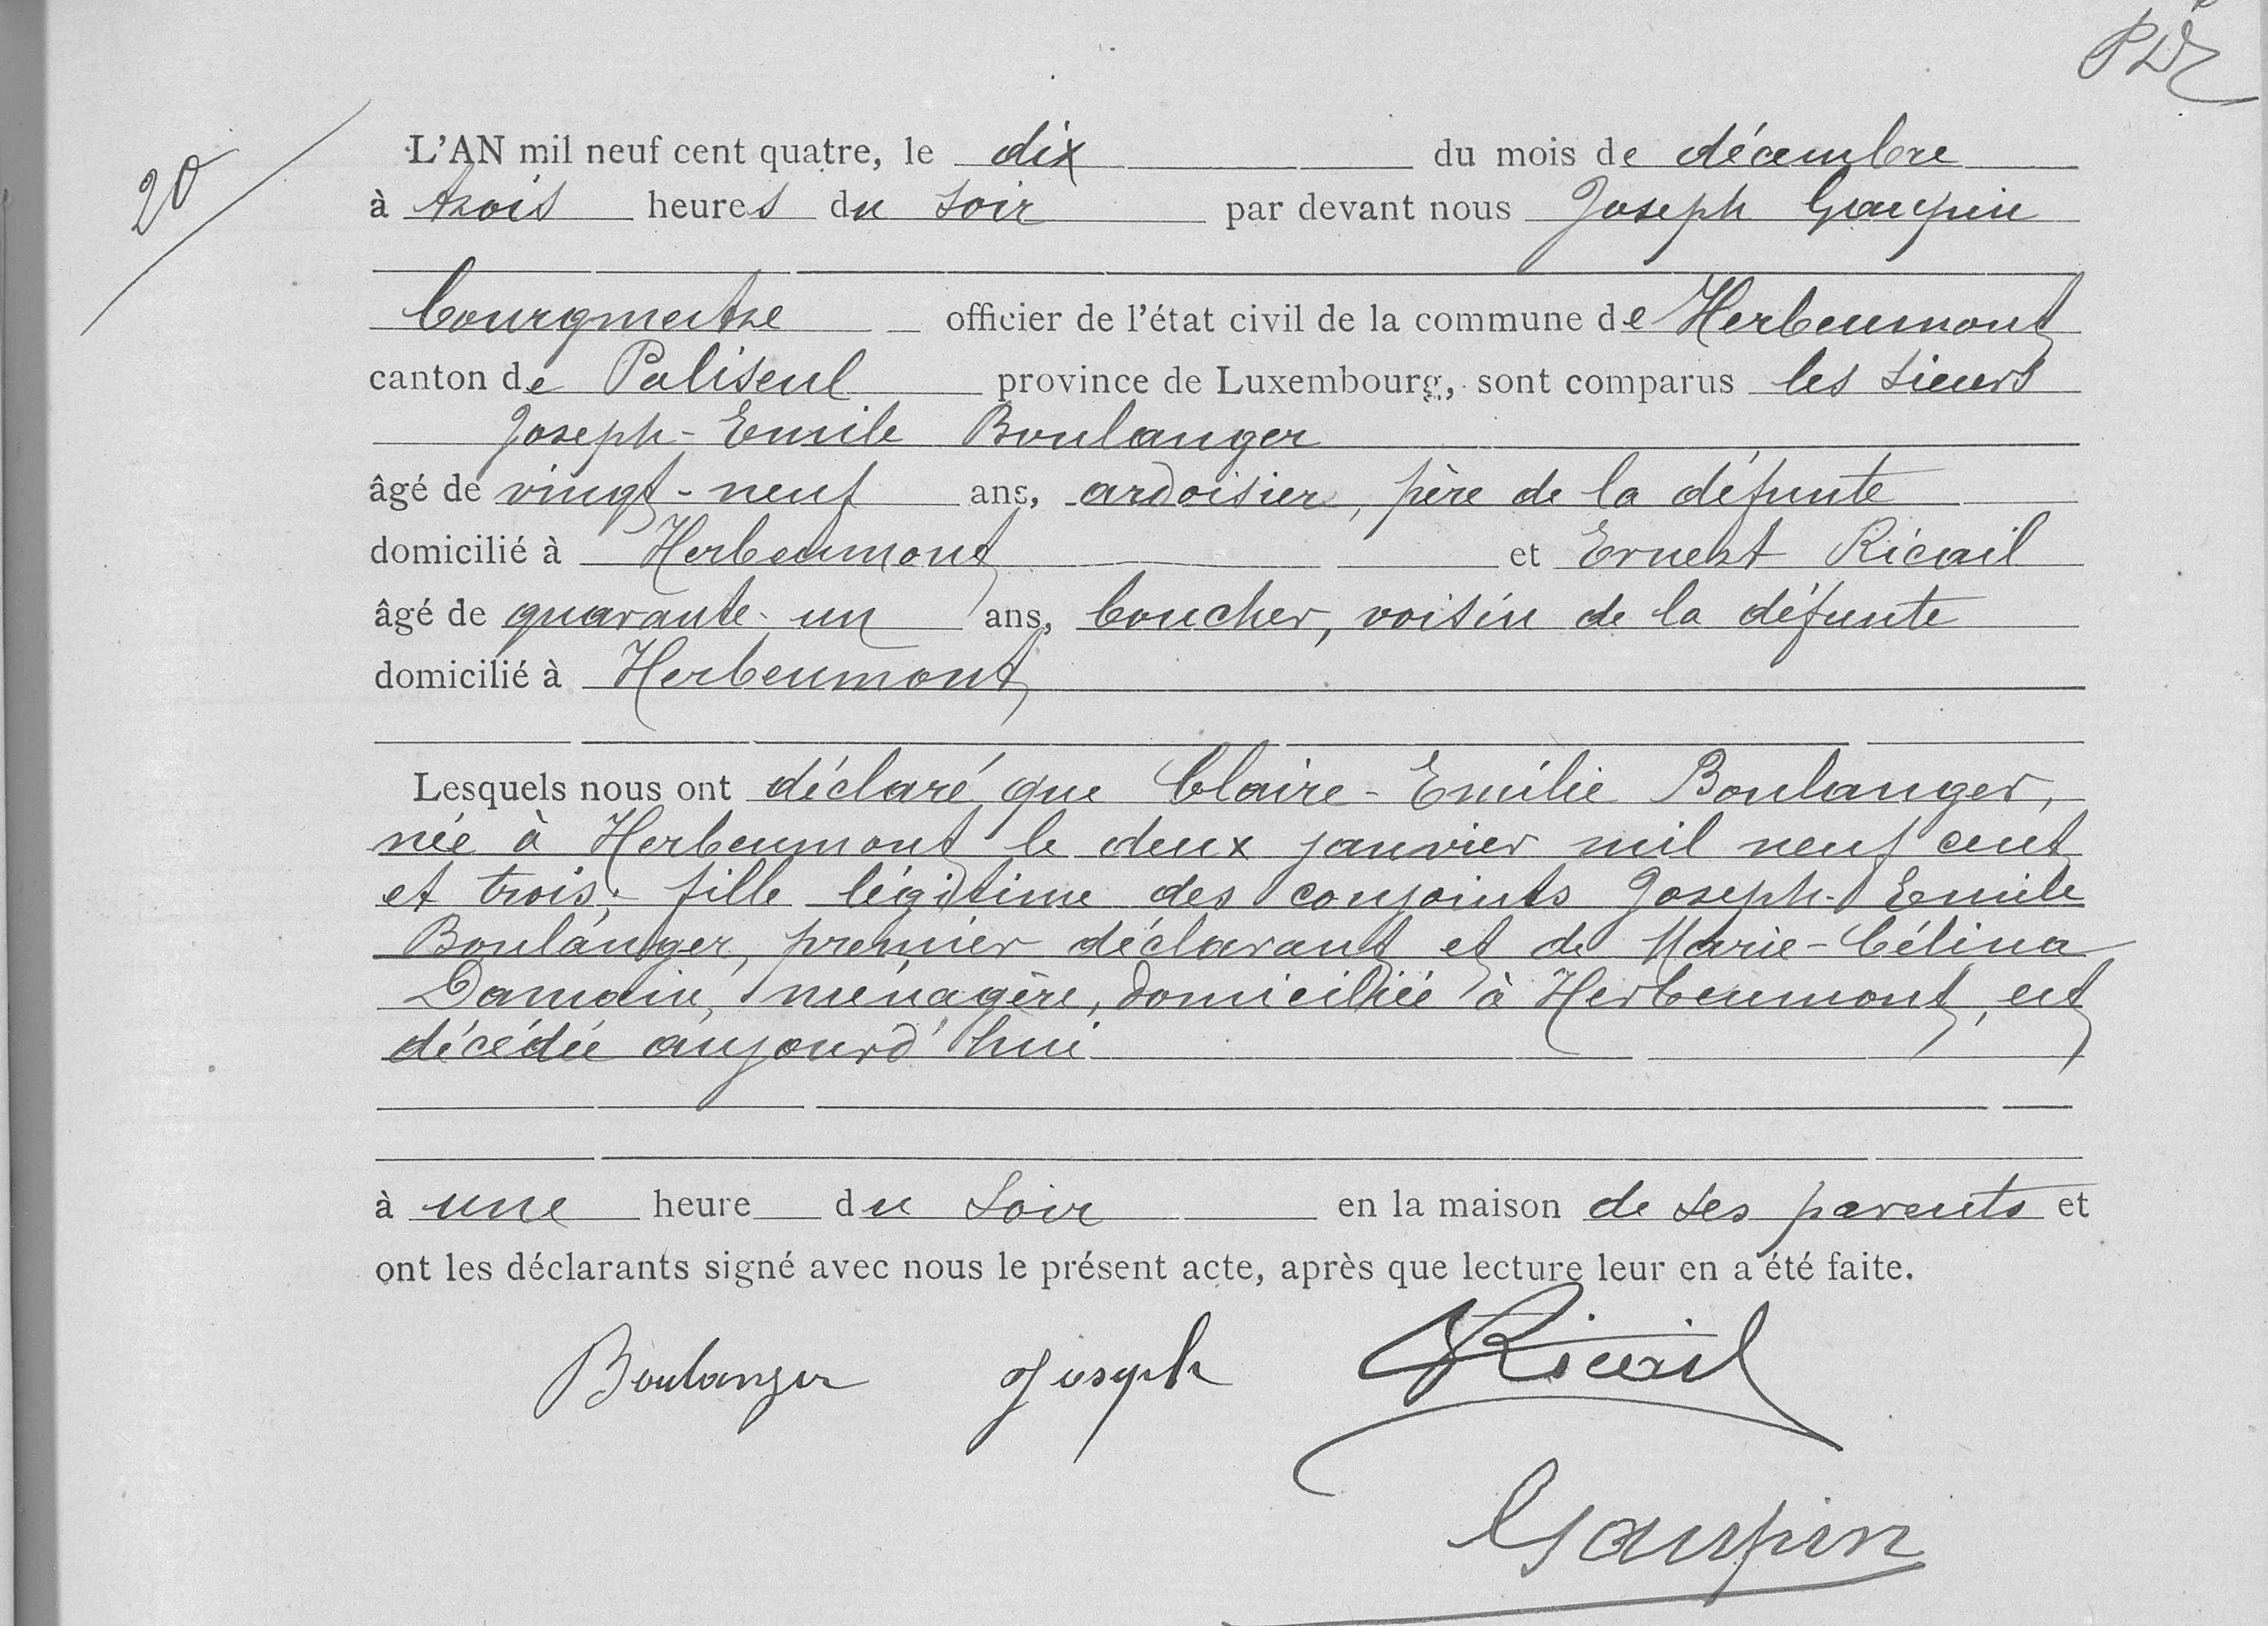 20
L'AN mil neuf cent quatre, le dix du mois de décembre
à trois heures du soir par devant nous Joseph Gaupin
bourgmestre officier de l'état civil de la commune de Herbeumont
canton de Paliseul province de Luxembourg, sont comparus les sieurs
Joseph-Emile Boulanger
âgé de vingt-neuf ans, ardoisier, père de la défunte
domicilié à Herbeumont et Ernest Ricail
âgé de quarante-un ans, boucher, voisin de la défunte
domicilié à Herbeumont
Lesquels nous ont déclaré que Claire-Emilie Boulanger,
née à Herbeumont le deux janvier mil neuf cent
et trois, fille légitime des conjoints Joseph-Emile
Boulanger, premier déclarant et de Marie-Célina
Damain, ménagère, domiciliée à Herbeumont, est
décédée aujourd'hui
à une heure du soir en la maison de ses parents et
ont les déclarants signé avec nous le présent acte, après que lecture leur en a été faite.
Boulanger Joseph Ricail
Gaupin